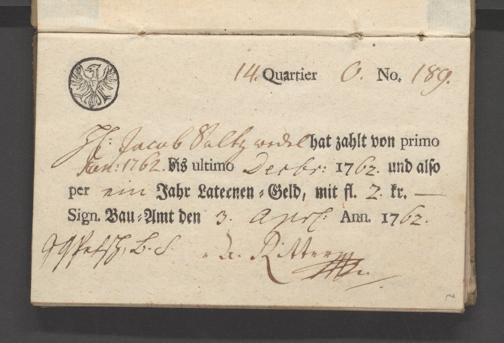 14. Quartier O. No. 189.
H: Jacob Saltzwedel hat zahlt von primo
Jan: 1762. bis ultimo Decbr: 1762. und also
per ein Jahr Latecnen-Geld, mit fl. 2. kr. —
Sign. Bau-Amt den 3. April: Ann. 1762.
Ritter